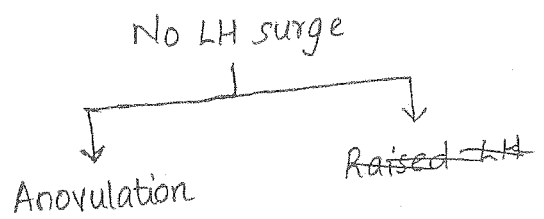 No LH surge
Anovulation
Raised LH